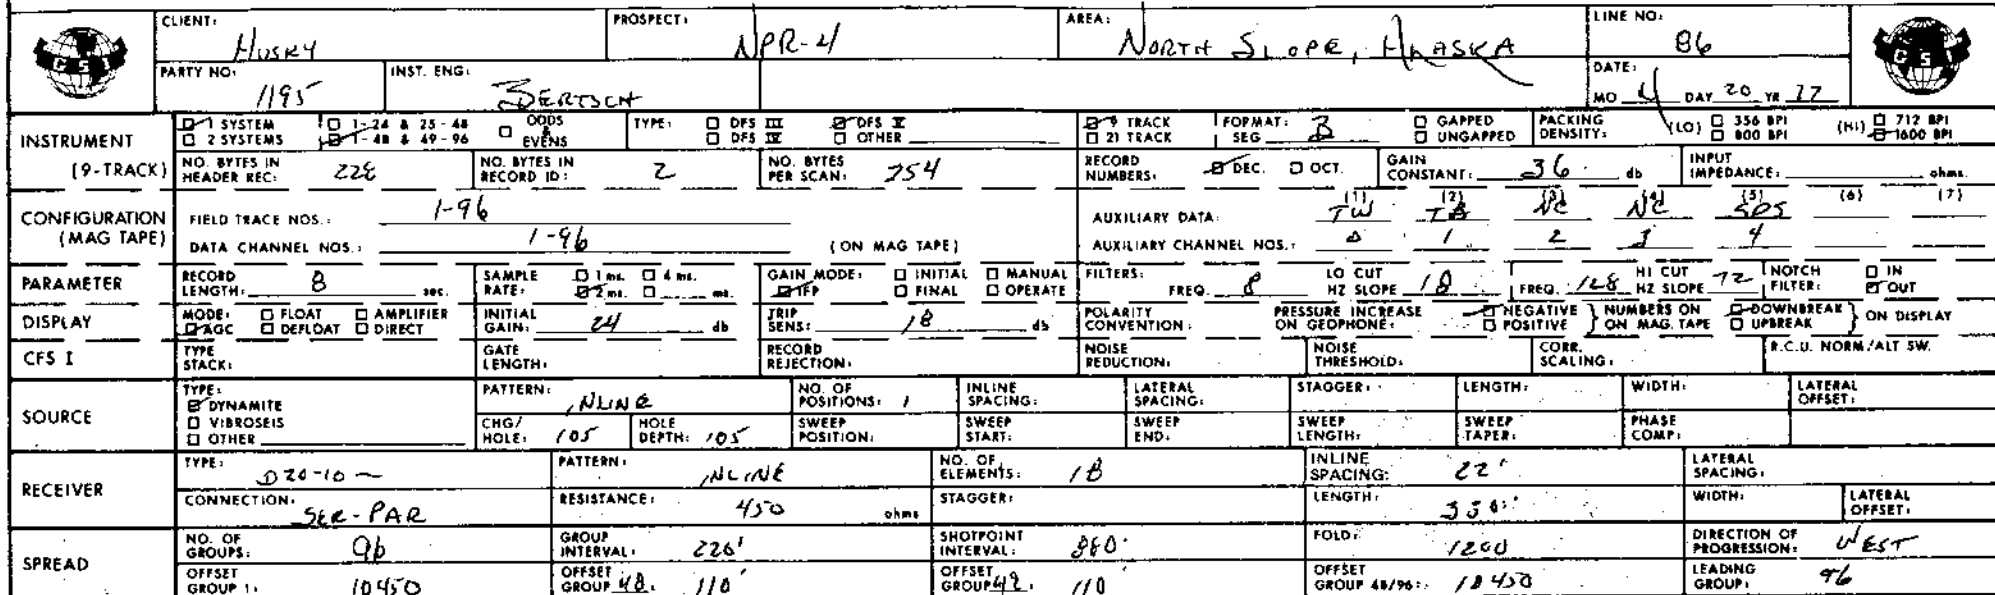 CLIENT: Husky PROSPECT: NPR-4 AREA: NORTH SLOPE, ALASKA LINE NO: 86
GSI GSI
PARTY NO: 1195 INST. ENG: BERTSCH DATE: MO 4 DAY 20 YR 77
INSTRUMENT (9-TRACK)
1 SYSTEM 1-24 & 25-48 ODDS & EVENS TYPE: DFS III DFS V 9 TRACK FORMAT: SEG B GAPPED PACKING DENSITY: (LO) 356 BPI (HI) 712 BPI
2 SYSTEMS 1-48 & 49-96 DFS IV OTHER 21 TRACK UNGAPPED 800 BPI 1600 BPI
NO. BYTES IN HEADER REC: 228 NO. BYTES IN RECORD ID: 2 NO. BYTES PER SCAN: 254 RECORD NUMBERS: DEC. OCT. GAIN CONSTANT: 36 db INPUT IMPEDANCE: ohms.
CONFIGURATION (MAG TAPE)
FIELD TRACE NOS.: 1-96 AUXILIARY DATA: (1) TW (2) TB (3) NC (4) NC (5) SDS (6) (7)
DATA CHANNEL NOS.: 1-96 (ON MAG TAPE) AUXILIARY CHANNEL NOS.: 0 1 2 3 4
PARAMETER RECORD LENGTH: 8 sec. SAMPLE RATE: 1 ms. 4 ms. 2 ms. ms. GAIN MODE: INITIAL MANUAL IFP FINAL OPERATE FILTERS: FREQ. 8 LO CUT HZ SLOPE 18 FREQ. 128 HI CUT HZ SLOPE 72 NOTCH FILTER: IN OUT
DISPLAY MODE: FLOAT AMPLIFIER AGC DEFLOAT DIRECT INITIAL GAIN: 24 db TRIP SENS: 18 db POLARITY CONVENTION: PRESSURE INCREASE ON GEOPHONE: NEGATIVE POSITIVE } NUMBERS ON MAG. TAPE DOWNBREAK UPBREAK } ON DISPLAY
CFS I TYPE STACK: GATE LENGTH: RECORD REJECTION: NOISE REDUCTION: NOISE THRESHOLD: CORR. SCALING: R.C.U. NORM/ALT SW.
SOURCE TYPE: DYNAMITE VIBROSEIS OTHER
PATTERN: INLINE NO. OF POSITIONS: 1 INLINE SPACING: LATERAL SPACING: STAGGER: LENGTH: WIDTH: LATERAL OFFSET:
CHG/HOLE: 105 HOLE DEPTH: 105 SWEEP POSITION: SWEEP START: SWEEP END: SWEEP LENGTH: SWEEP TAPER: PHASE COMP:
RECEIVER TYPE: D20-10~ PATTERN: INLINE NO. OF ELEMENTS: 18 INLINE SPACING: 22' LATERAL SPACING:
CONNECTION: SER-PAR RESISTANCE: 450 ohms STAGGER: LENGTH: WIDTH: LATERAL OFFSET:
SPREAD NO. OF GROUPS: 96 GROUP INTERVAL: 220' SHOTPOINT INTERVAL: 880' FOLD: 1200 DIRECTION OF PROGRESSION: WEST
OFFSET GROUP 1: 10450 OFFSET GROUP 48: 110' OFFSET GROUP 49: 110 OFFSET GROUP 48/96: 10450 LEADING GROUP: 96